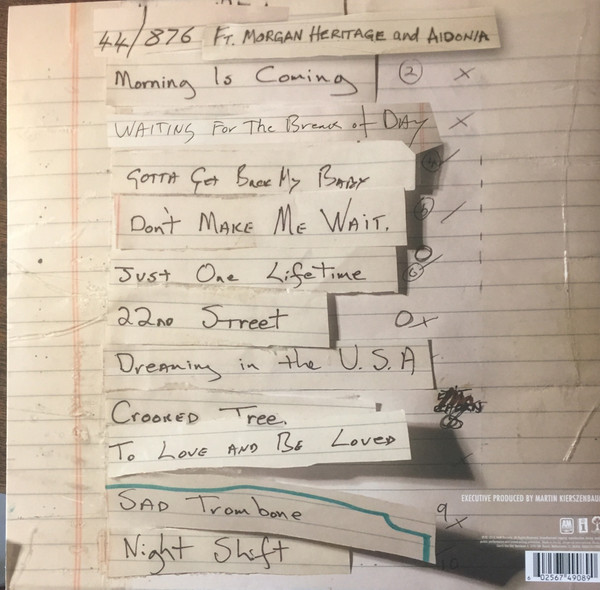 44/876 FT. MORGAN HERITAGE and AIDONIA
Morning Is Coming 2 x
WAITING For The Break of DAY x
GOTTA Get Back My BABY
Don't MAKE ME WAIT.
Just One Lifetime 6
22nd Street 0x
Dreaming in the U.S.A
CROOKED Tree.
To LOVE AND BE LOVED
EXECUTIVE PRODUCED BY MARTIN KIERSZENBAUM
SAD Trombone 9 x
Night Shift 10
A&M
6 02567 49089